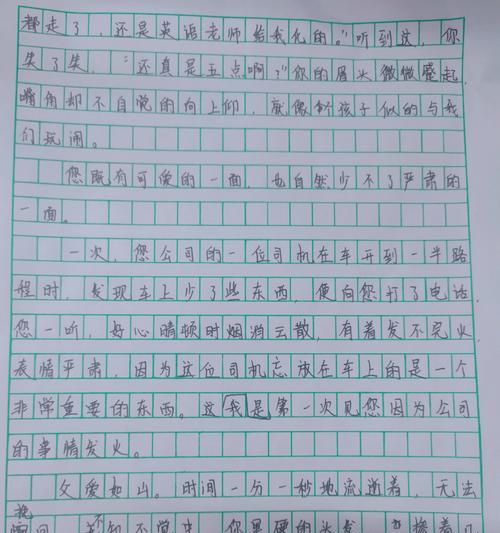 都走了，还是英语老师给我化的。"听到这，你
失了失，"还真是五点啊？"你的眉头微微蹙起，
嘴角却不自觉的向上仰，就像个孩子似的与我
们玩闹。
您既有可爱的一面，也自然少不了严肃的
一面。
一次，您公司的一位司机在车开到一半路
程时，发现车上少了些东西，便向您打了电话，
您一听，好心晴顿时烟消云散，有着发不完火
表情严肃，因为这位司机忘放在车上的是一个
非常重要的东西。这我是第一次见您因为公司
的事情发火。
父爱如山。时间一分一秒地流逝着，无法
挽回
不知不觉中，你黑硬的头发
掺着几